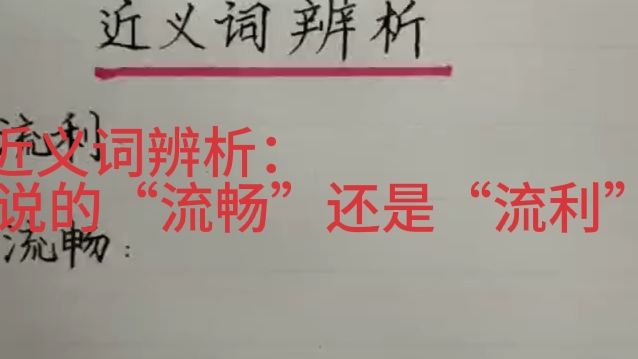 近义词辨析
流利
近义词辨析：
说的“流畅”还是“流利”
流畅：